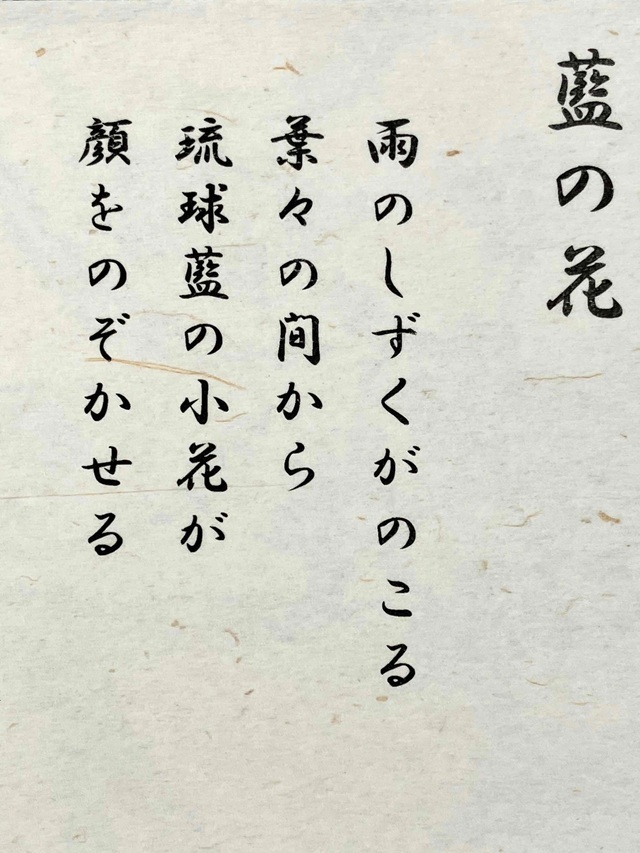 藍の花
雨のしずくがのこる
葉々の間から
琉球藍の小花が
顔をのぞかせる